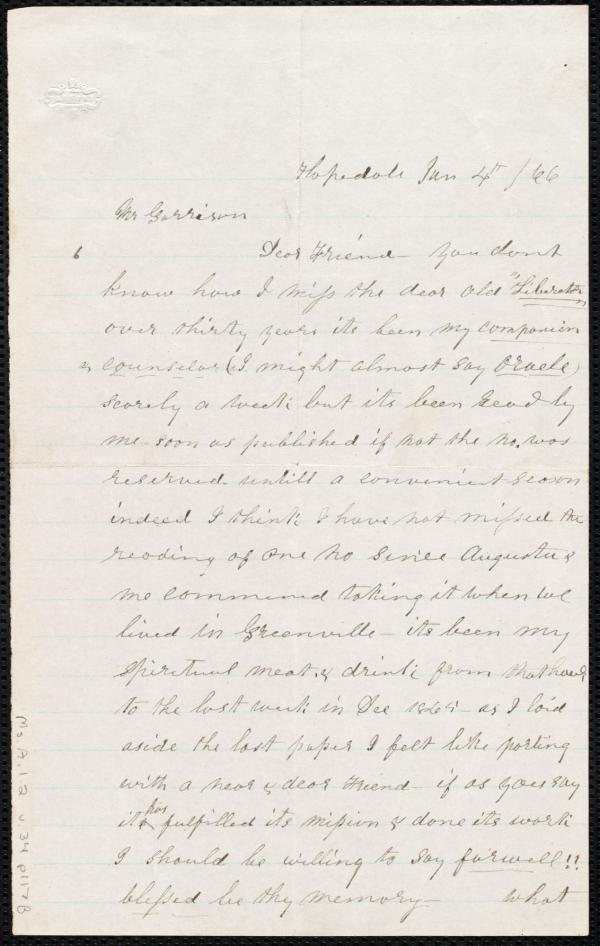 Hopedale Jan 4th /66
Mr Garrison
Dear Friend - you dont
know how I miss the dear old "Liberator"
over thirty years its been my companion
& counselor (I might almost say Oracle)
scarely a week but its been read by
me soon as published if not the no. was
reserved untill a convenient season
indeed I think I have not missed the
reading of one no since Augustus &
me commenced taking it when we
lived in Greenville - its been my
spiritual meat & drink from that hour
to the last week in Dec 1865 - as I laid
aside the last paper I felt like parting
with a near & dear Friend - if as you say
its has fulfilled its mission & done its work
I should be willing to say farwell!!
blessed be thy memory - what
Ms.A.1.2 v.34 p117B